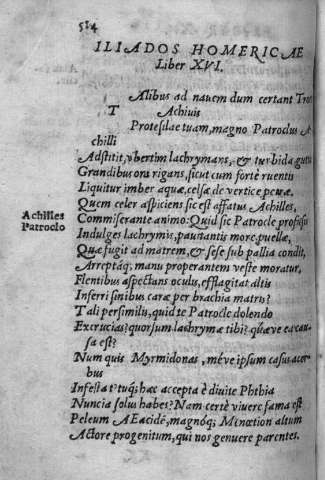 584
ILIADOS HOMERICAE
Liber XVI.
Alibus ad nauem dum certant Troes
T Achiuis
Protesilae tuam, magno Patroclus A-
chilli
Adstitit, vbertim lachrymans, & turbida gutta
Grandibus ora rigans, sicut cum forte ruentis
Liquitur imber aquæ, celsæ de vertice petræ.
Quem celer aspiciens sic est affatus Achilles,
Achilles
Patroclo
Commiserante animo: Quid sic Patrocle profusis
Indulges lachrymis, pauitantis more, puellæ,
Quæ fugit ad matrem, & sese sub pallia condit,
Arreptáq; manu properantem veste moratur,
Flentibus aspectans oculis, efflagitat altis
Inferri sinibus caræ per brachia matris?
Tali persimilis, quid te Patrocle dolendo
Excrucias? quorsum lachrymæ tibi? quæve ea cau-
sa est?
Num quis Myrmidonas, méve ipsum casus acer-
bus
Infestat? tuq; hæc accepta è diuite Phthia
Nuncia solus habes? Nam certè viuere fama est
Peleum AEacidē, magnóq; Menœtion altum
Actore progenitum, qui nos genuere parentes.